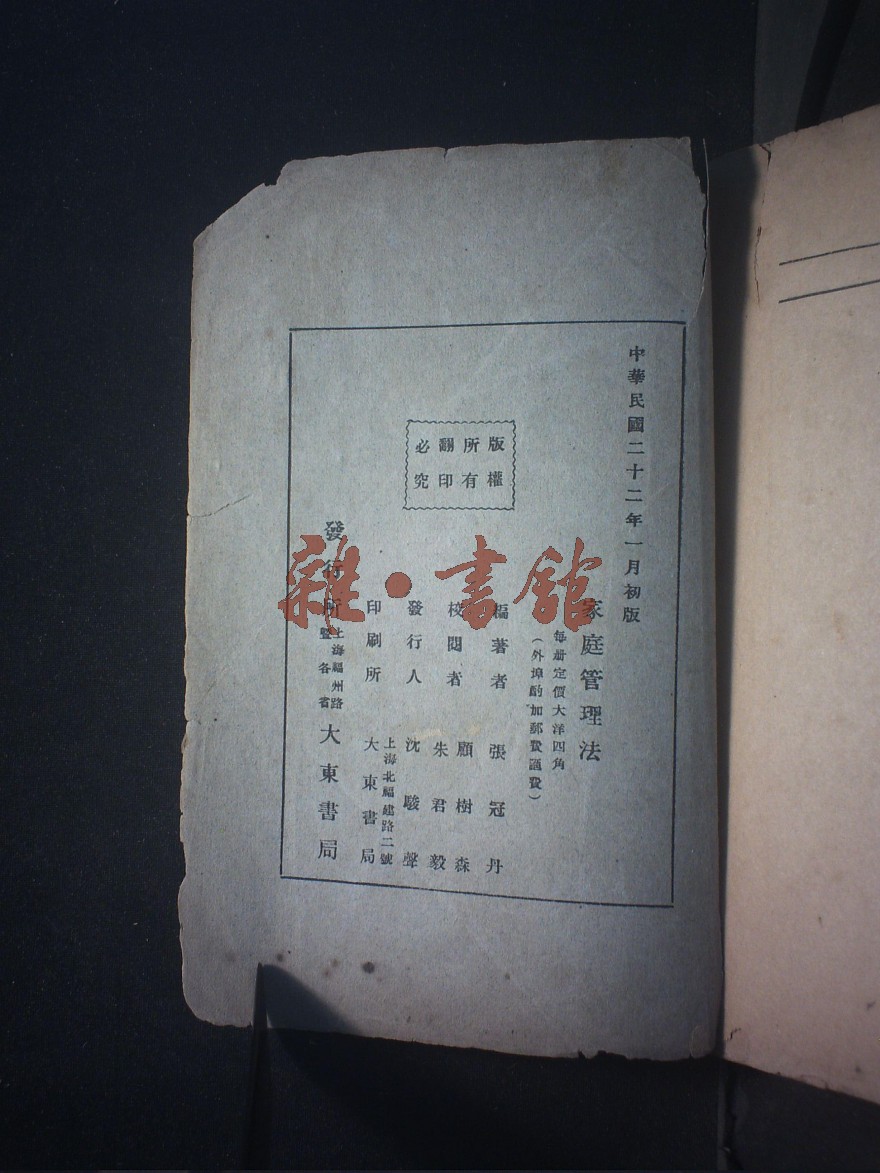 中華民國二十二年一月初版
家庭管理法
每冊定價大洋四角
（外埠酌加郵費滙費）
編著者 張冠丹
校閱者 顧樹森
朱君毅
發行人 沈駿聲
上海北福建路二號
印刷所 大東書局
發行所 上海福州路
暨各省
大東書局
版權
所有
翻印
必究
雜·書館